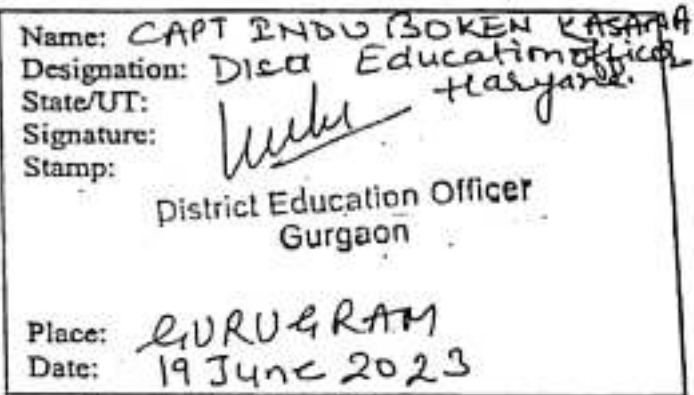 Name: CAPT INDU BOKEN KASANA
Designation: Distt Education officer
State/UT: Haryana.
Signature:
Stamp:
District Education Officer
Gurgaon
Place: GURUGRAM
Date: 19 June 2023